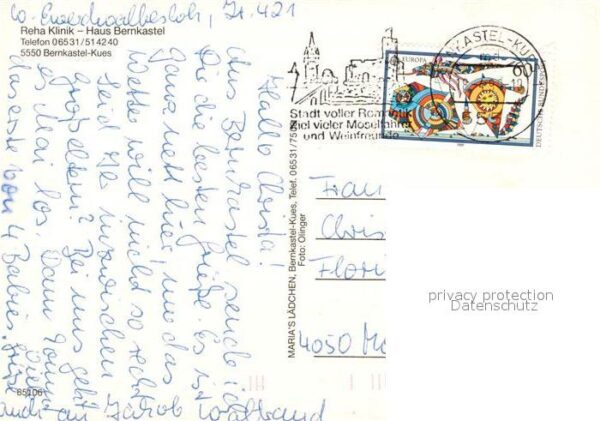 Zi. 421
Reha Klinik – Haus Bernkastel
Telefon 06531/514240
5550 Bernkastel-Kues
Hallo Christa!
Aus Bernkastel sende ich
Dir die besten Grüße. Es ist
ganz nett hier, nur das
Wetter will nicht so recht.
Seid Ihr inzwischen
Großeltern? Bei uns geht
es Mai los. Dann kommt
das erste von 4 Babies. Viele Grüße
auch an Jakob Waltraud
85106
MARIA'S LÄDCHEN, Bernkastel-Kues, Telef. 06531/75
Foto: Olinger
Stadt voller Romantik
Ziel vieler Moselfahrer
und Weinfreunde
NKASTEL-KUES
EUROPA
60
DEUTSCHE BUNDESPOST
Frau
Chris
Flori
4050 Mö
privacy protection
Datenschutz